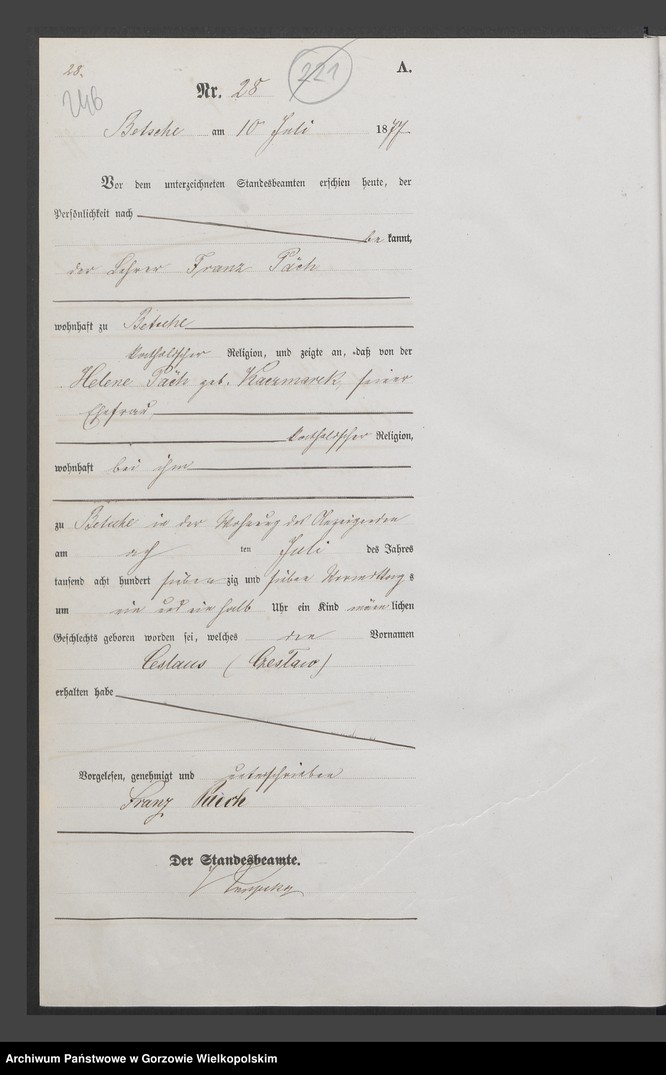 28.
246
221
A.
Nr. 28
Betsche am 10 Juli 1877
Vor dem unterzeichneten Standesbeamten erschien heute, der
Persönlichkeit nach
be kannt,
der Lehrer Franz Päch
wohnhaft zu Betsche
katholischer Religion, und zeigte an, daß von der
Helene Päch geb. Kaczmarek, seiner
Ehefrau
katholischer Religion,
wohnhaft bei ihm
zu Betsche in der Wohnung des Anzeigenden
am acht ten Juli des Jahres
tausend acht hundert sieben zig und sieben Vormittag s
um ein und ein halb Uhr ein Kind männ lichen
Geschlechts geboren worden sei, welches den Vornamen
Ceslaus (Czeslaw)
erhalten habe
Vorgelesen, genehmigt und unterschrieben
Franz Paech
Der Standesbeamte.